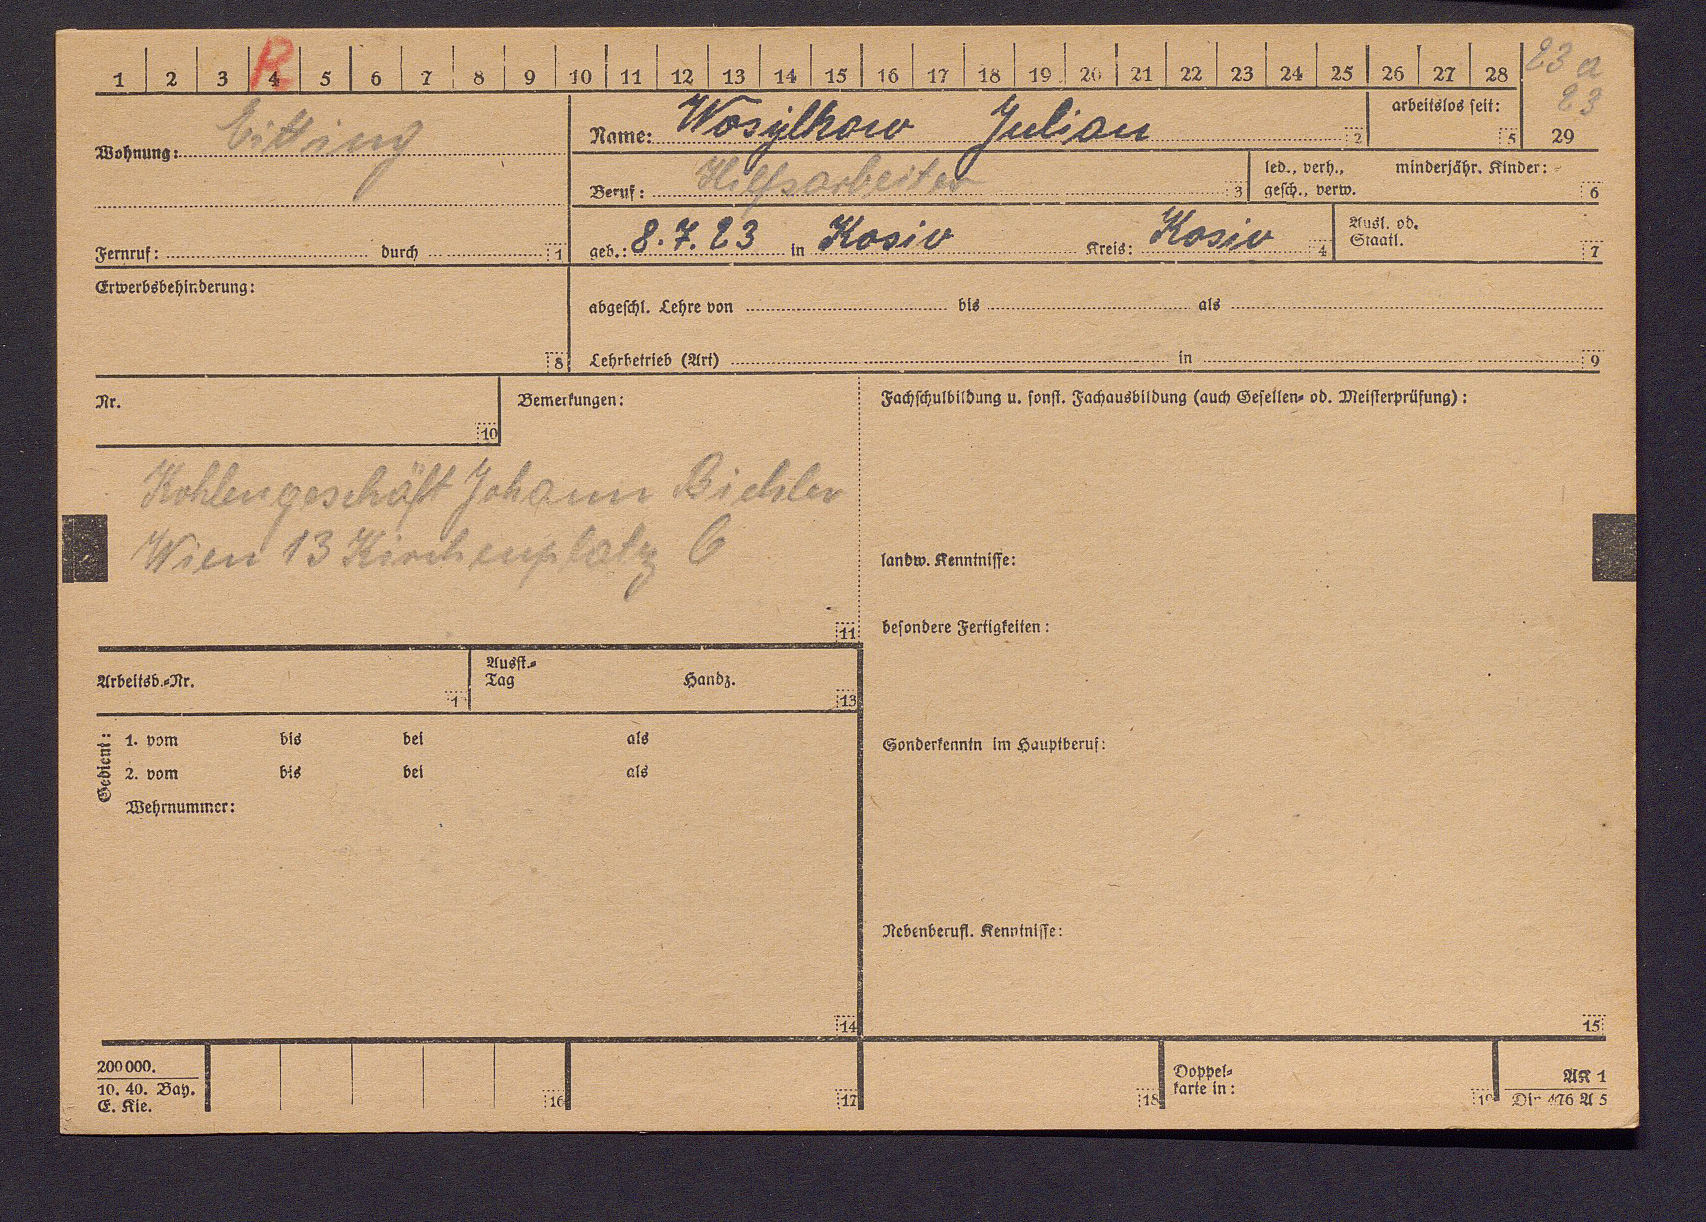 1 2 3 4 5 6 7 8 9 10 11 12 13 14 15 16 17 18 19 20 21 22 23 24 25 26 27 28 23 a
R
23
29
Wohnung: Eitting
Name: Wosylkow Julian 2
arbeitslos seit: 5
Beruf: Hilfsarbeiter 3
led., verh., minderjähr. Kinder:
gesch., verw. 6
Fernruf: durch 1
geb.: 8.7.23 in Kosiv Kreis: Kosiv 4
Ausl. od.
Staatl. 7
Erwerbsbehinderung:
8
abgeschl. Lehre von bis als
Lehrbetrieb (Art) in 9
Nr.
10
Bemerkungen:
Kohlengeschäft Johann Bichler
Wien 13 Kirchenplatz 6
11
Fachschulbildung u. sonst. Fachausbildung (auch Gesellen- od. Meisterprüfung):
landw. Kenntnisse:
besondere Fertigkeiten:
Arbeitsb.-Nr.
1
Ausst.-
Tag Handz.
13
Gedient:
1. vom bis bei als
2. vom bis bei als
Wehrnummer:
14
Sonderkenntn im Hauptberuf:
Nebenberufl. Kenntnisse:
15
200 000.
10. 40. Bay.
E. Kie.
16
17
18
Doppel-
karte in:
19
AK 1
Din 476 A 5